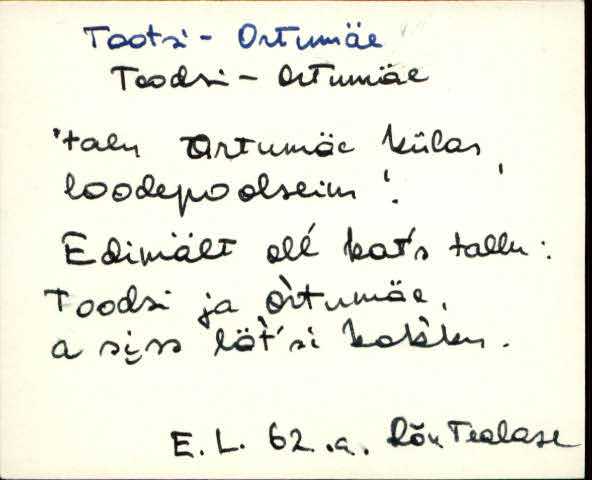 Tootsi - Ortumäe
Toodsi - Ortumäe
'talu Ortumäe külas,
loodepoolseim'.
Edimält olĺ kat's tallu:
Toodsi ja òrtumäe,
a siss lät'si kokku.
E. L. 62.a. Rõu Tealase